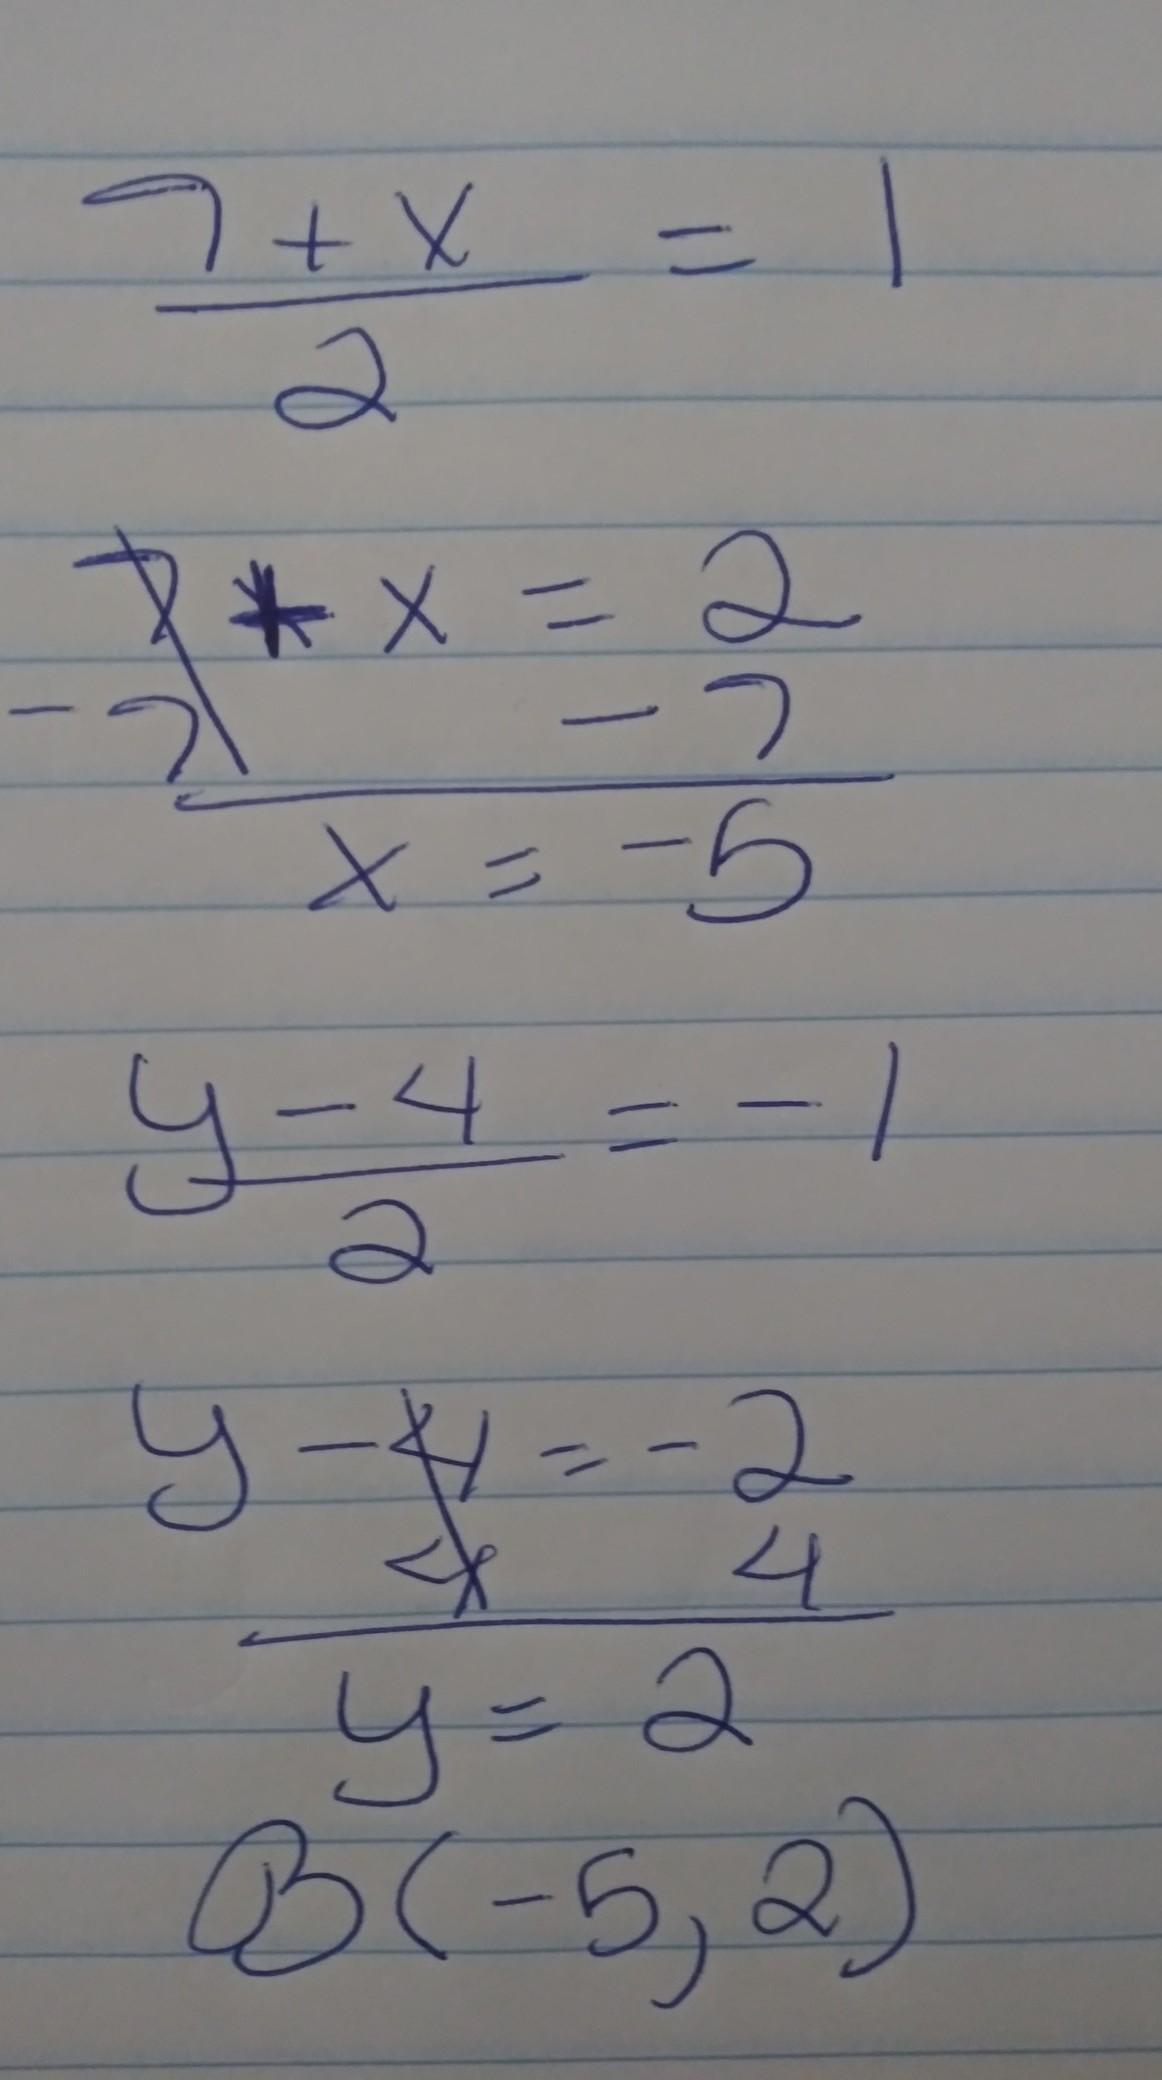 7 + x = 1
2
7 * x = 2
- 7 - 7
x = -5
y - 4 = - 1
2
y - 4 = - 2
4 4
y = 2
B(-5, 2)